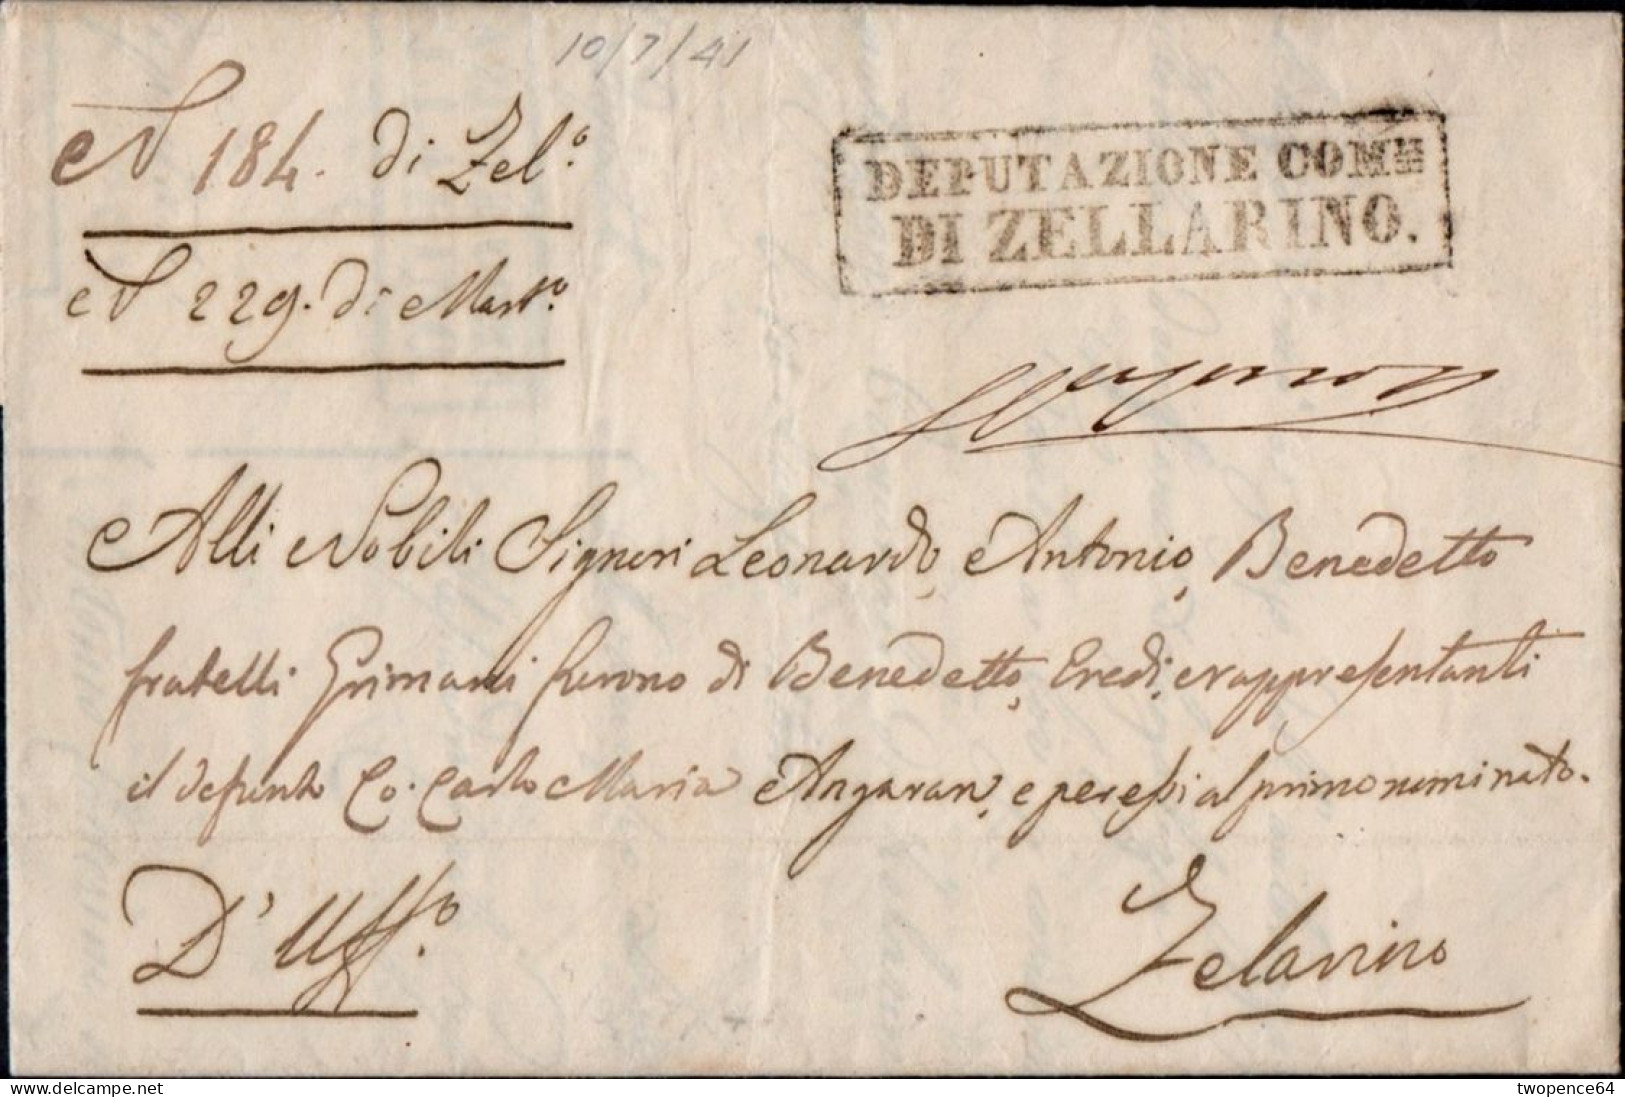 10/7/41
N 184. di Zel.º
N 229. di Mart.º
DEPUTAZIONE COM.LE
DI ZELLARINO.
Alli Nobili Signori Leonardo, Antonio, Benedetto
fratelli Grimani di Benedetto, Eredi, e rappresentanti
il defunto Co. Carlo Maria Angaran, e per essi al primo nominato.
D'Uff.º
Zelarino
delcampe.net
twopence64